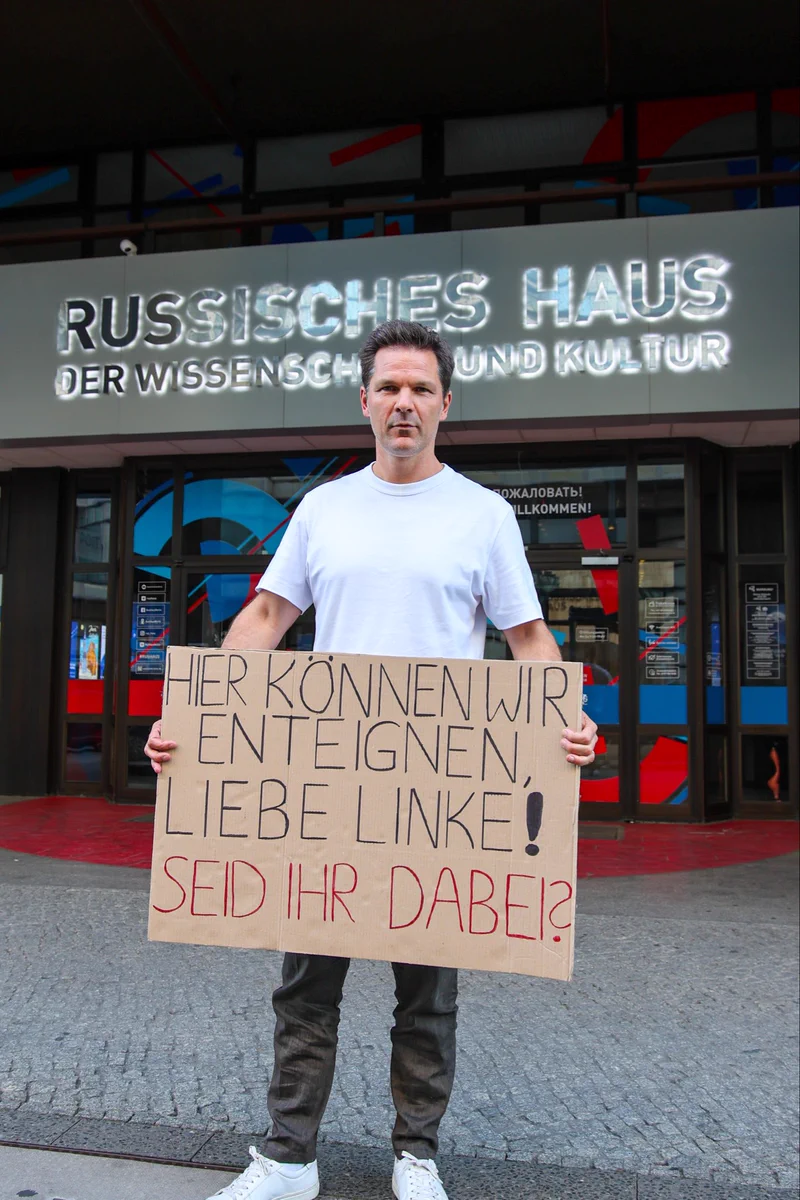 RUSSISCHES HAUS
DER WISSENSCH UND KULTUR
ПОЖАЛОВАТЬ!
ILLKOMMEN!
HIER KÖNNEN WIR
ENTEIGNEN,
LIEBE LINKE!
SEID IHR DABEI?